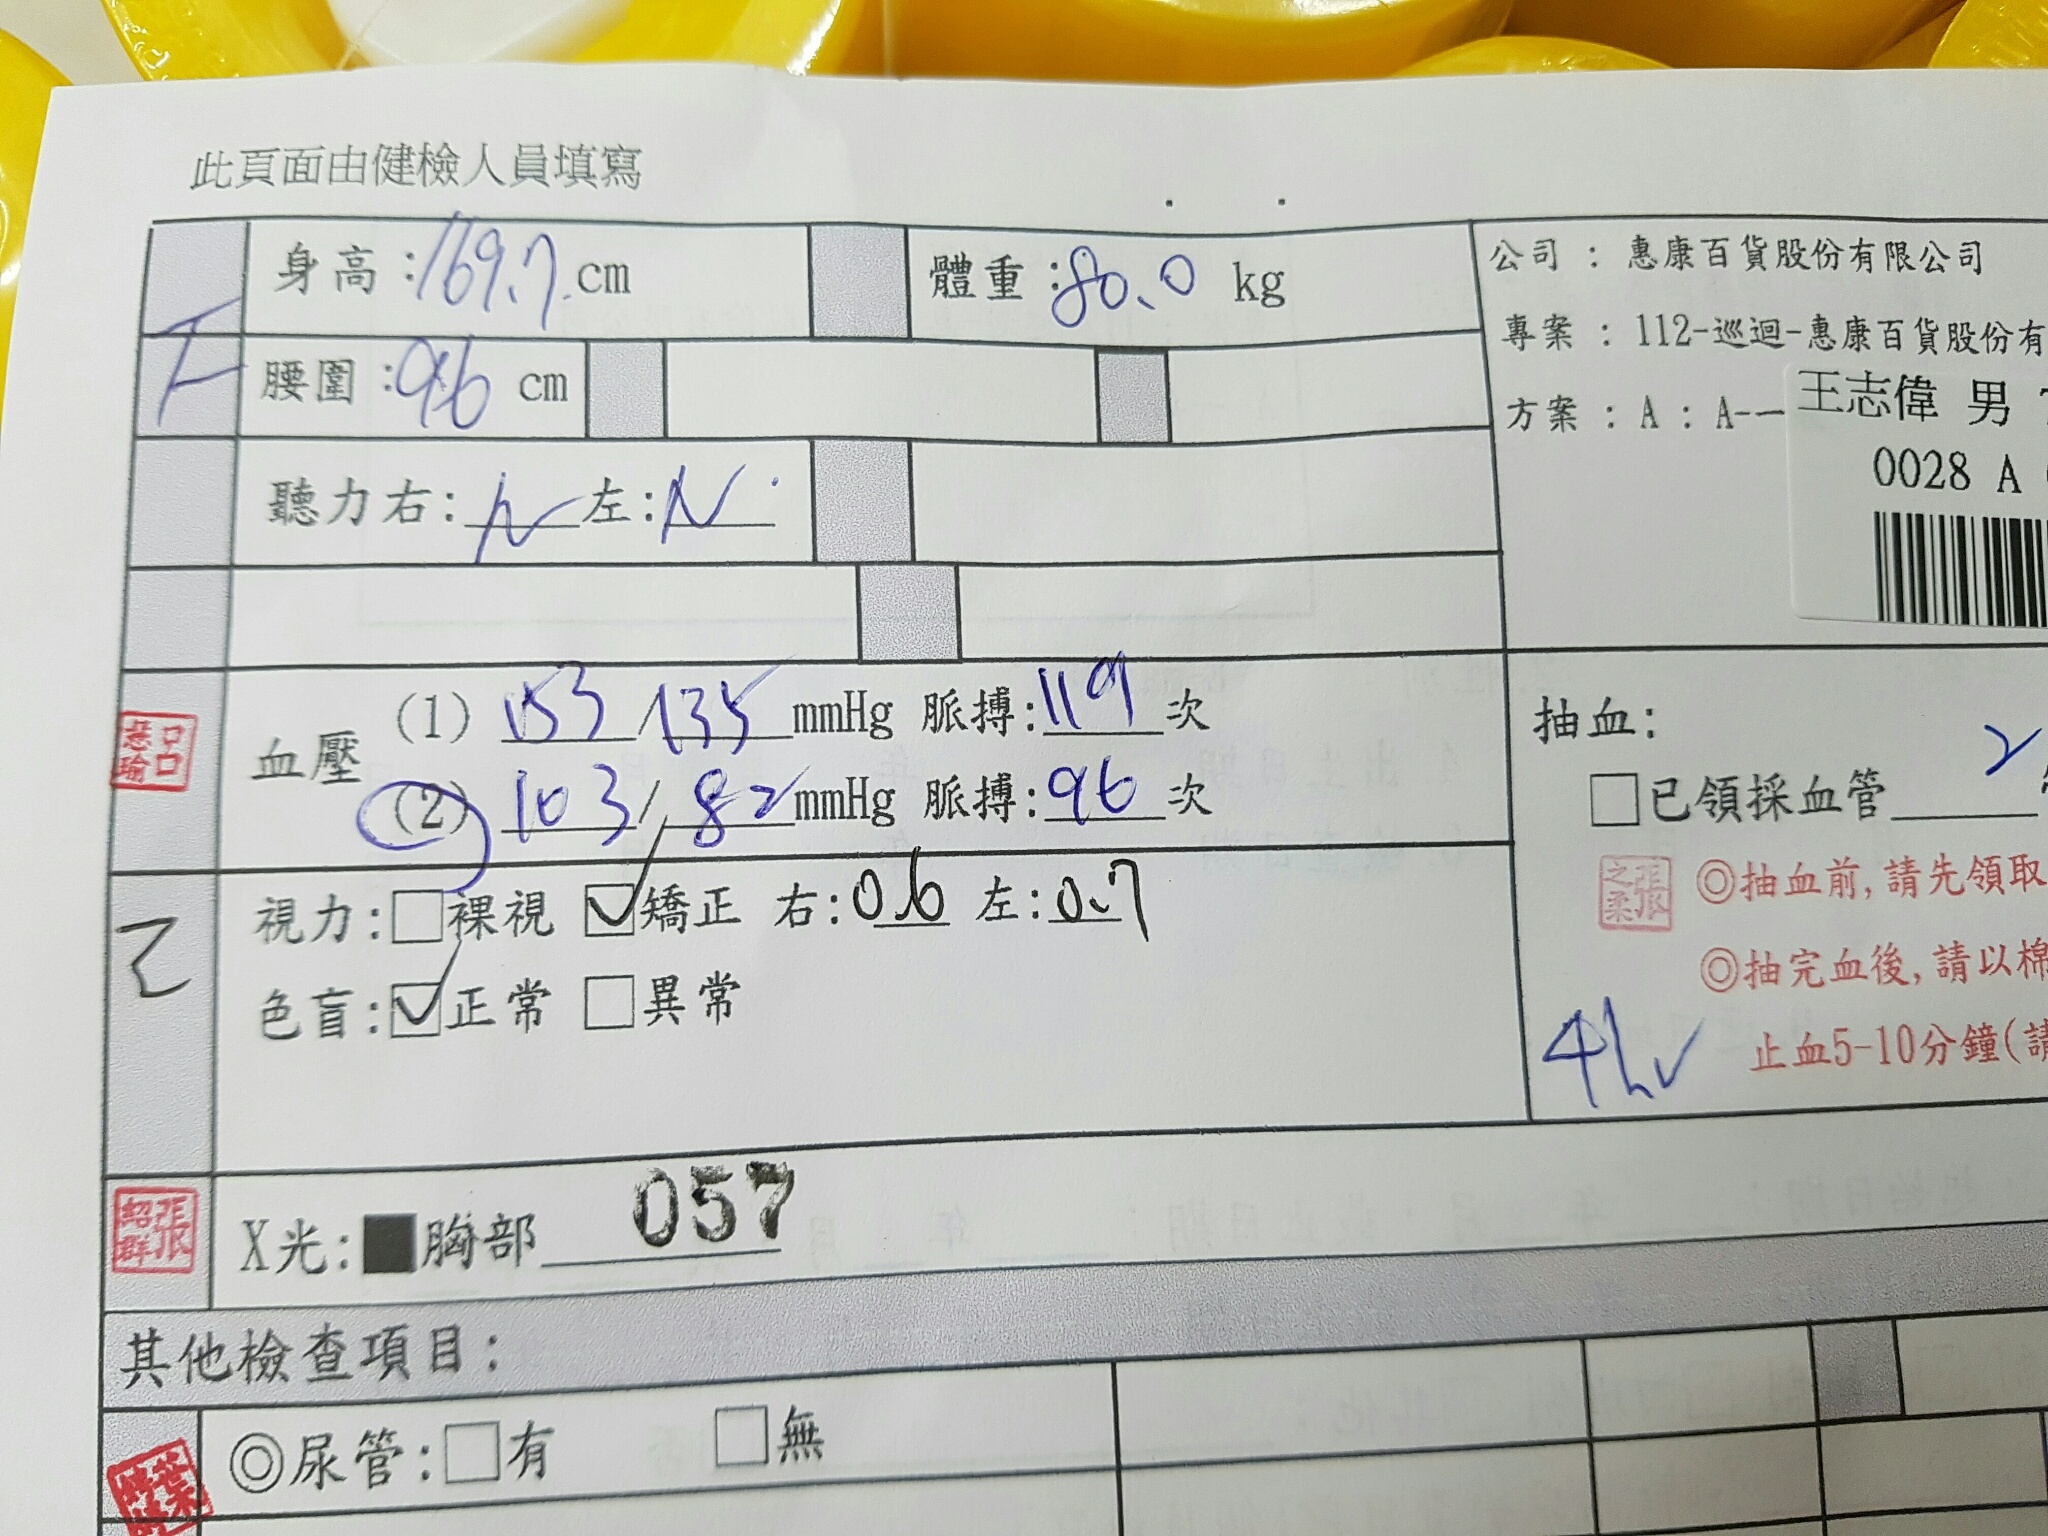 此頁面由健檢人員填寫
身高:169.7 cm
體重:80.0 kg
公司 : 惠康百貨股份有限公司
專案 : 112-巡迴-惠康百貨股份有
腰圍:96 cm
方案 : A : A-一
王志偉 男
0028 A
聽力右:N 左:N
血壓 (1) 153/135 mmHg 脈搏:119次
(2) 103/82 mmHg 脈搏:96次
抽血:
□已領採血管 2
視力:□裸視 ☑矯正 右:0.6 左:0.7
色盲:☑正常 □異常
張之柔
◎抽血前,請先領取
◎抽完血後,請以棉
止血5-10分鐘(請
4h
張紹群
X光:■胸部 057
其他檢查項目:
◎尿管:□有 □無